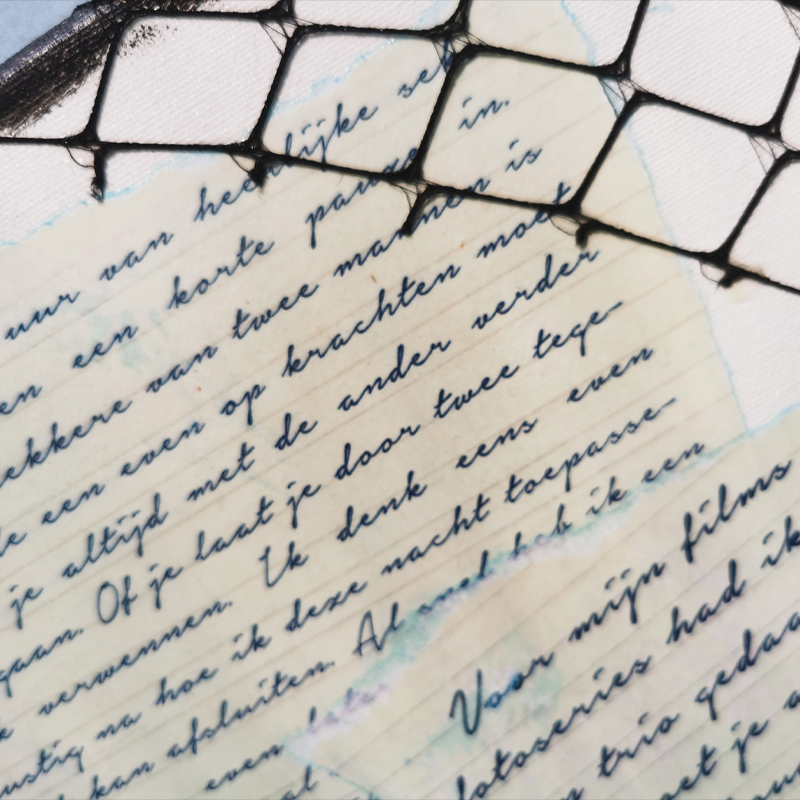 uur van heerlijke
een korte pauze in.
van twee mannen is
een even op krachten moet
je altijd met de ander verder
gaan. Of je laat je door twee tege-
verwennen. Ik denk eens even
na hoe ik deze nacht toepasse-
kan afsluiten. Al snel heb ik een
even later
Voor mijn films
fotoseries had ik
trio gedaa
je